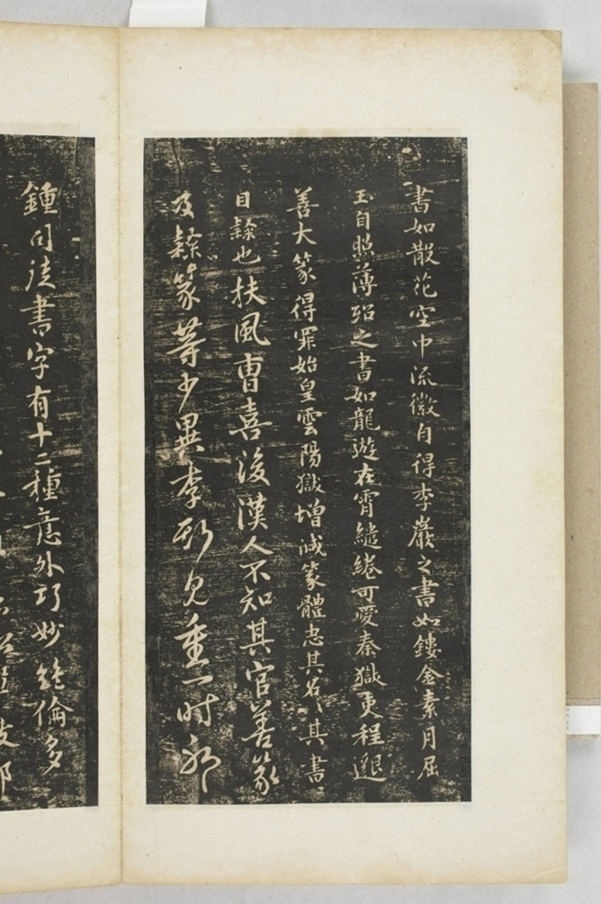 書如散花空中流徽自得李巖之書如鏤金素月屈
玉自照薄紹之書如龍遊在霄繾綣可愛秦獄吏程邈
善大篆得罪始皇雲陽獄增減篆體去其名其書
曰隸也扶風曹喜後漢人不知其官善篆
及隸篆等少異李斯見重一時
鍾司徒書字有十二種意外巧妙絶倫多